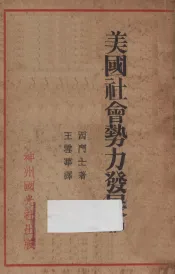 美國社會勢力發展
西門士著
王雲華譯
神州國光社出版